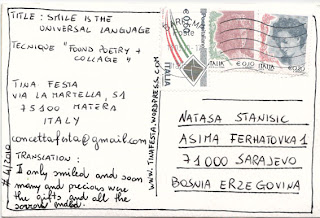 TITLE: SMILE IS THE
UNIVERSAL LANGUAGE
TECNIQUE "FOUND POETRY +
COLLAGE"
TINA FESTA
VIA LA MARTELLA, 151
75100 MATERA
ITALY
concettafesta@gmail.com
TRANSLATION:
I only smiled and soon
many and precious were
the gifts and all the
sorrow ended.
# 4/2010
WWW.TINAFESTA.WORDPRESS.COM
ITALIA
ITALIA
€0,10
ITALIA
€0,60
NATASA STANISIC
ASIMA FERHATOVKA 1
71000 SARAJEVO
BOSNIA ERZEGOVINA